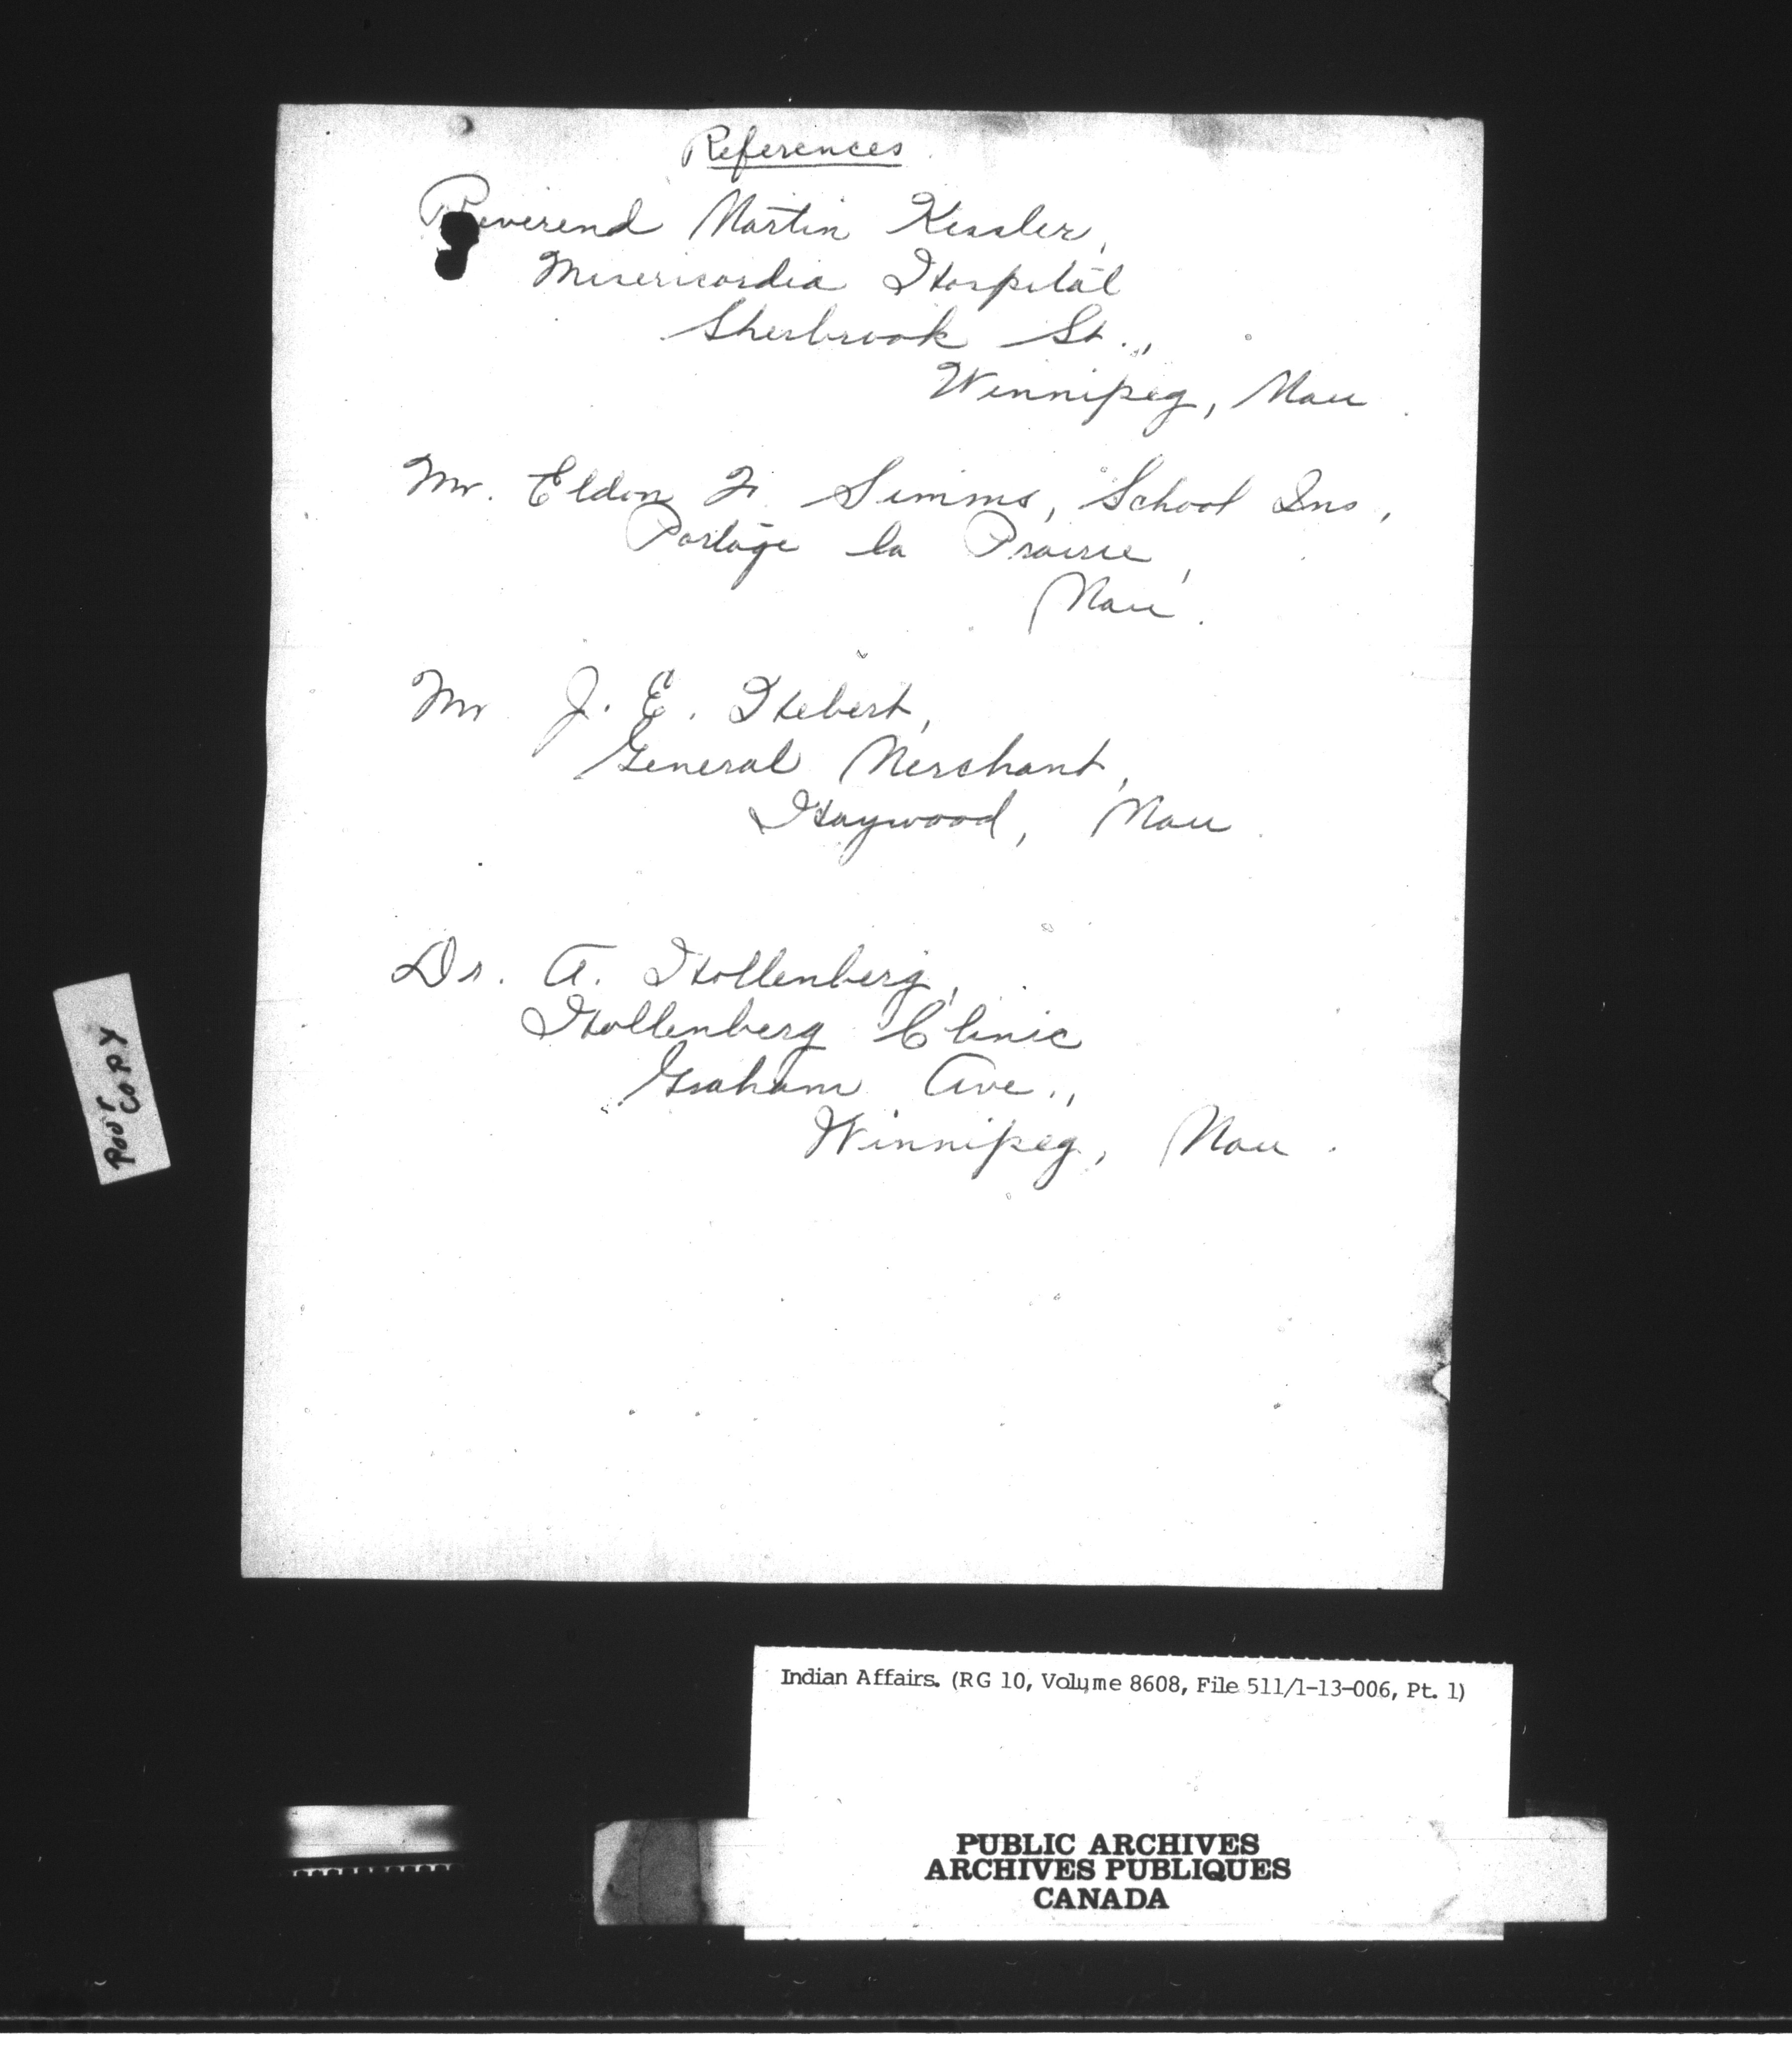 References
Reverend Martin Kessler,
Misericordia Hospital
Sherbrook St.,
Winnipeg, Man.
Mr. Eldon F. Simms, School Ins,
Portage la Prairie,
Man.
Mr J. E. Hebert,
General Merchant,
Haywood, Man.
Dr. A. Hollenberg,
Hollenberg Clinic
Graham Ave.,
Winnipeg, Man.
POOR COPY
Indian Affairs. (RG 10, Volume 8608, File 511/1-13-006, Pt. 1)
PUBLIC ARCHIVES
ARCHIVES PUBLIQUES
CANADA